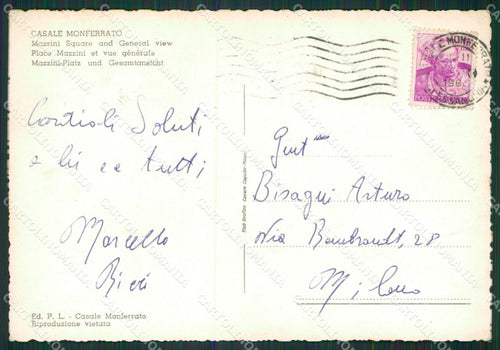 CASALE MONFERRATO
Mazzini Square and General view
Place Mazzini et vue générale
Mazzini-Platz und Gesamtansicht
Cordiali Saluti
a lei e a tutti
Marcello
Ed. P. L. - Casale Monferrato
Riproduzione vietata
Bisagni Arturo
Via Rembrandt, 28
Milano
CARTOLINOMANIA